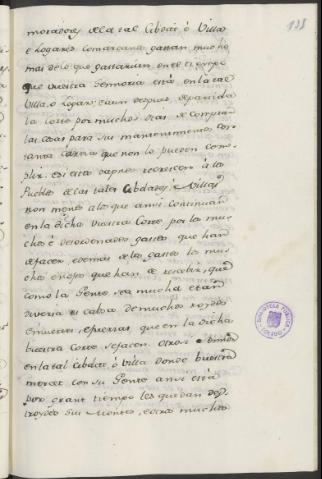 moradores de la tal Cibdat ó Villa
é Logares comarcanos gastan mucho
mas de lo que gastarien en el tiempo
que vuestra Sennoria está en la tal
Villa, o Logar; é aun despues de partida
la Corte por muchos dias de comprar
las cosas para su mantenimiento con
tanta carza que non lo pueden com-
plir. E si este dapno recresce á los
Pueblos de las tales Cibdades é Villas
non menos á los que ansi continuan
en la dicha vuestra Corte por los mu-
chos é desordenados gastos que han
de facer, é demas de los gastos los mu-
chos enojos que han de rescebir, que
como la Gente sea mucha é tan
diversa es cabsa de muchos roydos
é muertes, é peleas que en la dicha
vuestra Corte se facen. Otrosi
en la tal Cibdat, ó Villa donde vuestra
mercet con su Gente ansi está
por grant tiempo les quedan des-
troydos sus Montes, é otros muchos